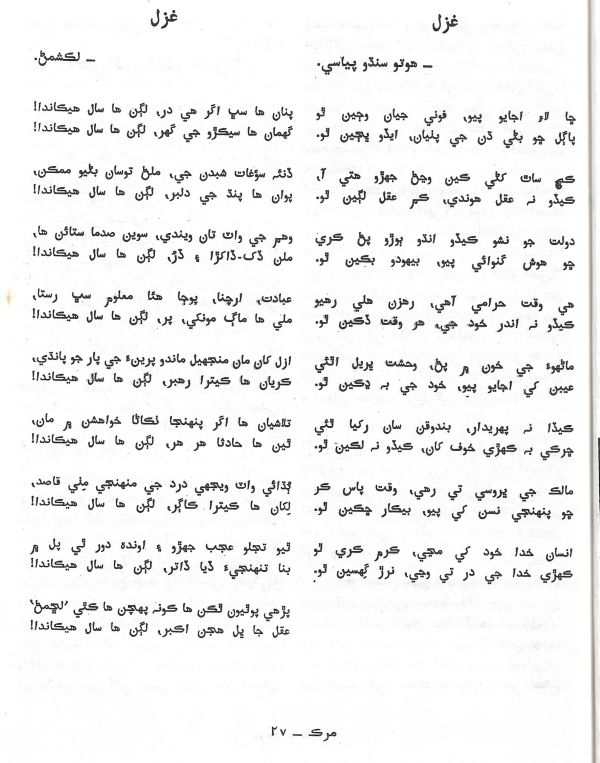 غزل
– هوتو سنڌو پياسي.
ڇا لاءِ اجايو پيو، فوني جيان وڃين ٿو
پاڳل ڇو بڻي ڌن جي پٺيان، ايڏو ڀڄين ٿو.
ڪڇ ساٿ کڻي ڪين وڃڻ جهڙو هتي آ،
ڪيڏو نہ عقل هوندي، ڪم عقل لڳين ٿو.
دولت جو نشو ڪيڏو انڌو ٻوڙو پڻ ڪري
ڇو هوش گنوائي پيو، بيهودو بڪين ٿو.
هي وقت حرامي آهي، رهزن هلي رهيو
ڪيڏو نہ اندر خود جي، هر وقت ڏڪين ٿو.
ماڻهوءَ جي خون ۾ پڻ، وحشت ڀريل اٿئي
عيبن کي اجايو پيو، خود جي بہ ڍڪين ٿو.
ڪيڏا نہ پهريدار، بندوقن سان رکيا ٿئي
ڇرڪي بہ ڪهڙي خوف کان، ڪيڏو نہ لڪين ٿو.
مالڪ جي ڀروسي تي رهي، وقت پاس ڪر
ڇو پنهنجي نسن کي پيو، بيڪار ڇڪين ٿو.
انسان خدا خود کي مڃي، ڪرم ڪري ٿو
ڪهڙي خدا جي در تي وڃي، نرڙ گهسين ٿو.
غزل
– لڪشمڻ.
پنان ها سڀ اگر هي در، لڳن ها سال هيڪاندا!
گهمان ها سيڪڙو جي گهر، لڳن ها سال هيڪاندا!
ڏنئہ سؤغات شبدن جي، ملڻ توسان بڻيو ممڪن،
پوان ها پنڌ جي دلبر، لڳن ها سال هيڪاندا!
وهم جي واٽ تان ويندي، سوين صدما ستائن ها،
ملن ڌڪ-ڌاڪڙا ۽ ڏڙ، لڳن ها سال هيڪاندا!
عبادت، ارچنا، پوڄا هئا معلوم سڀ رستا،
ملي ها ماڳ مونکي، پر، لڳن ها سال هيڪاندا!
ازل کان مان منجهيل ماندو پرينءَ جي پار جو پانڌي،
ڪريان ها ڪيترا رهبر، لڳن ها سال هيڪاندا!
تلاشيان ها اگر پنهنجا ٺڪاڻا خواهشن ۾ مان،
ٿين ها حادثا هر هر، لڳن ها سال هيڪاندا!
ٻڌائي واٽ ويجهي درد جي منهنجي مِٺي قاصد،
لِکان ها ڪيترا ڪاڳر، لڳن ها سال هيڪاندا!
ٿيو تجلو عجب جهڙو ۽ اونده دور ٿي پل ۾
بنا تنهنجيءَ ڏيا ڏاتر، لڳن ها سال هيڪاندا!
پڙهي پوٿيون ٿڪن ها ڪونہ پهچن ها ڪٿي ’لڇمڻ‘
عقل جا ڀل هجن اڪبر، لڳن ها سال هيڪاندا!
مرڪ – ٢٧